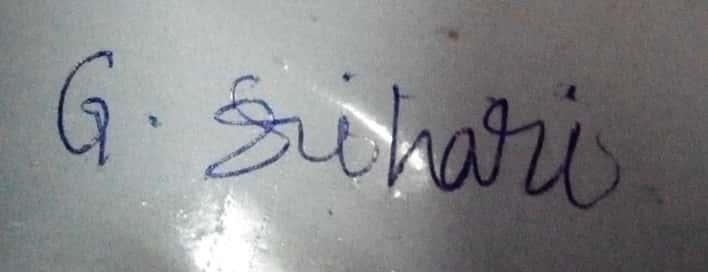 G. Srihari